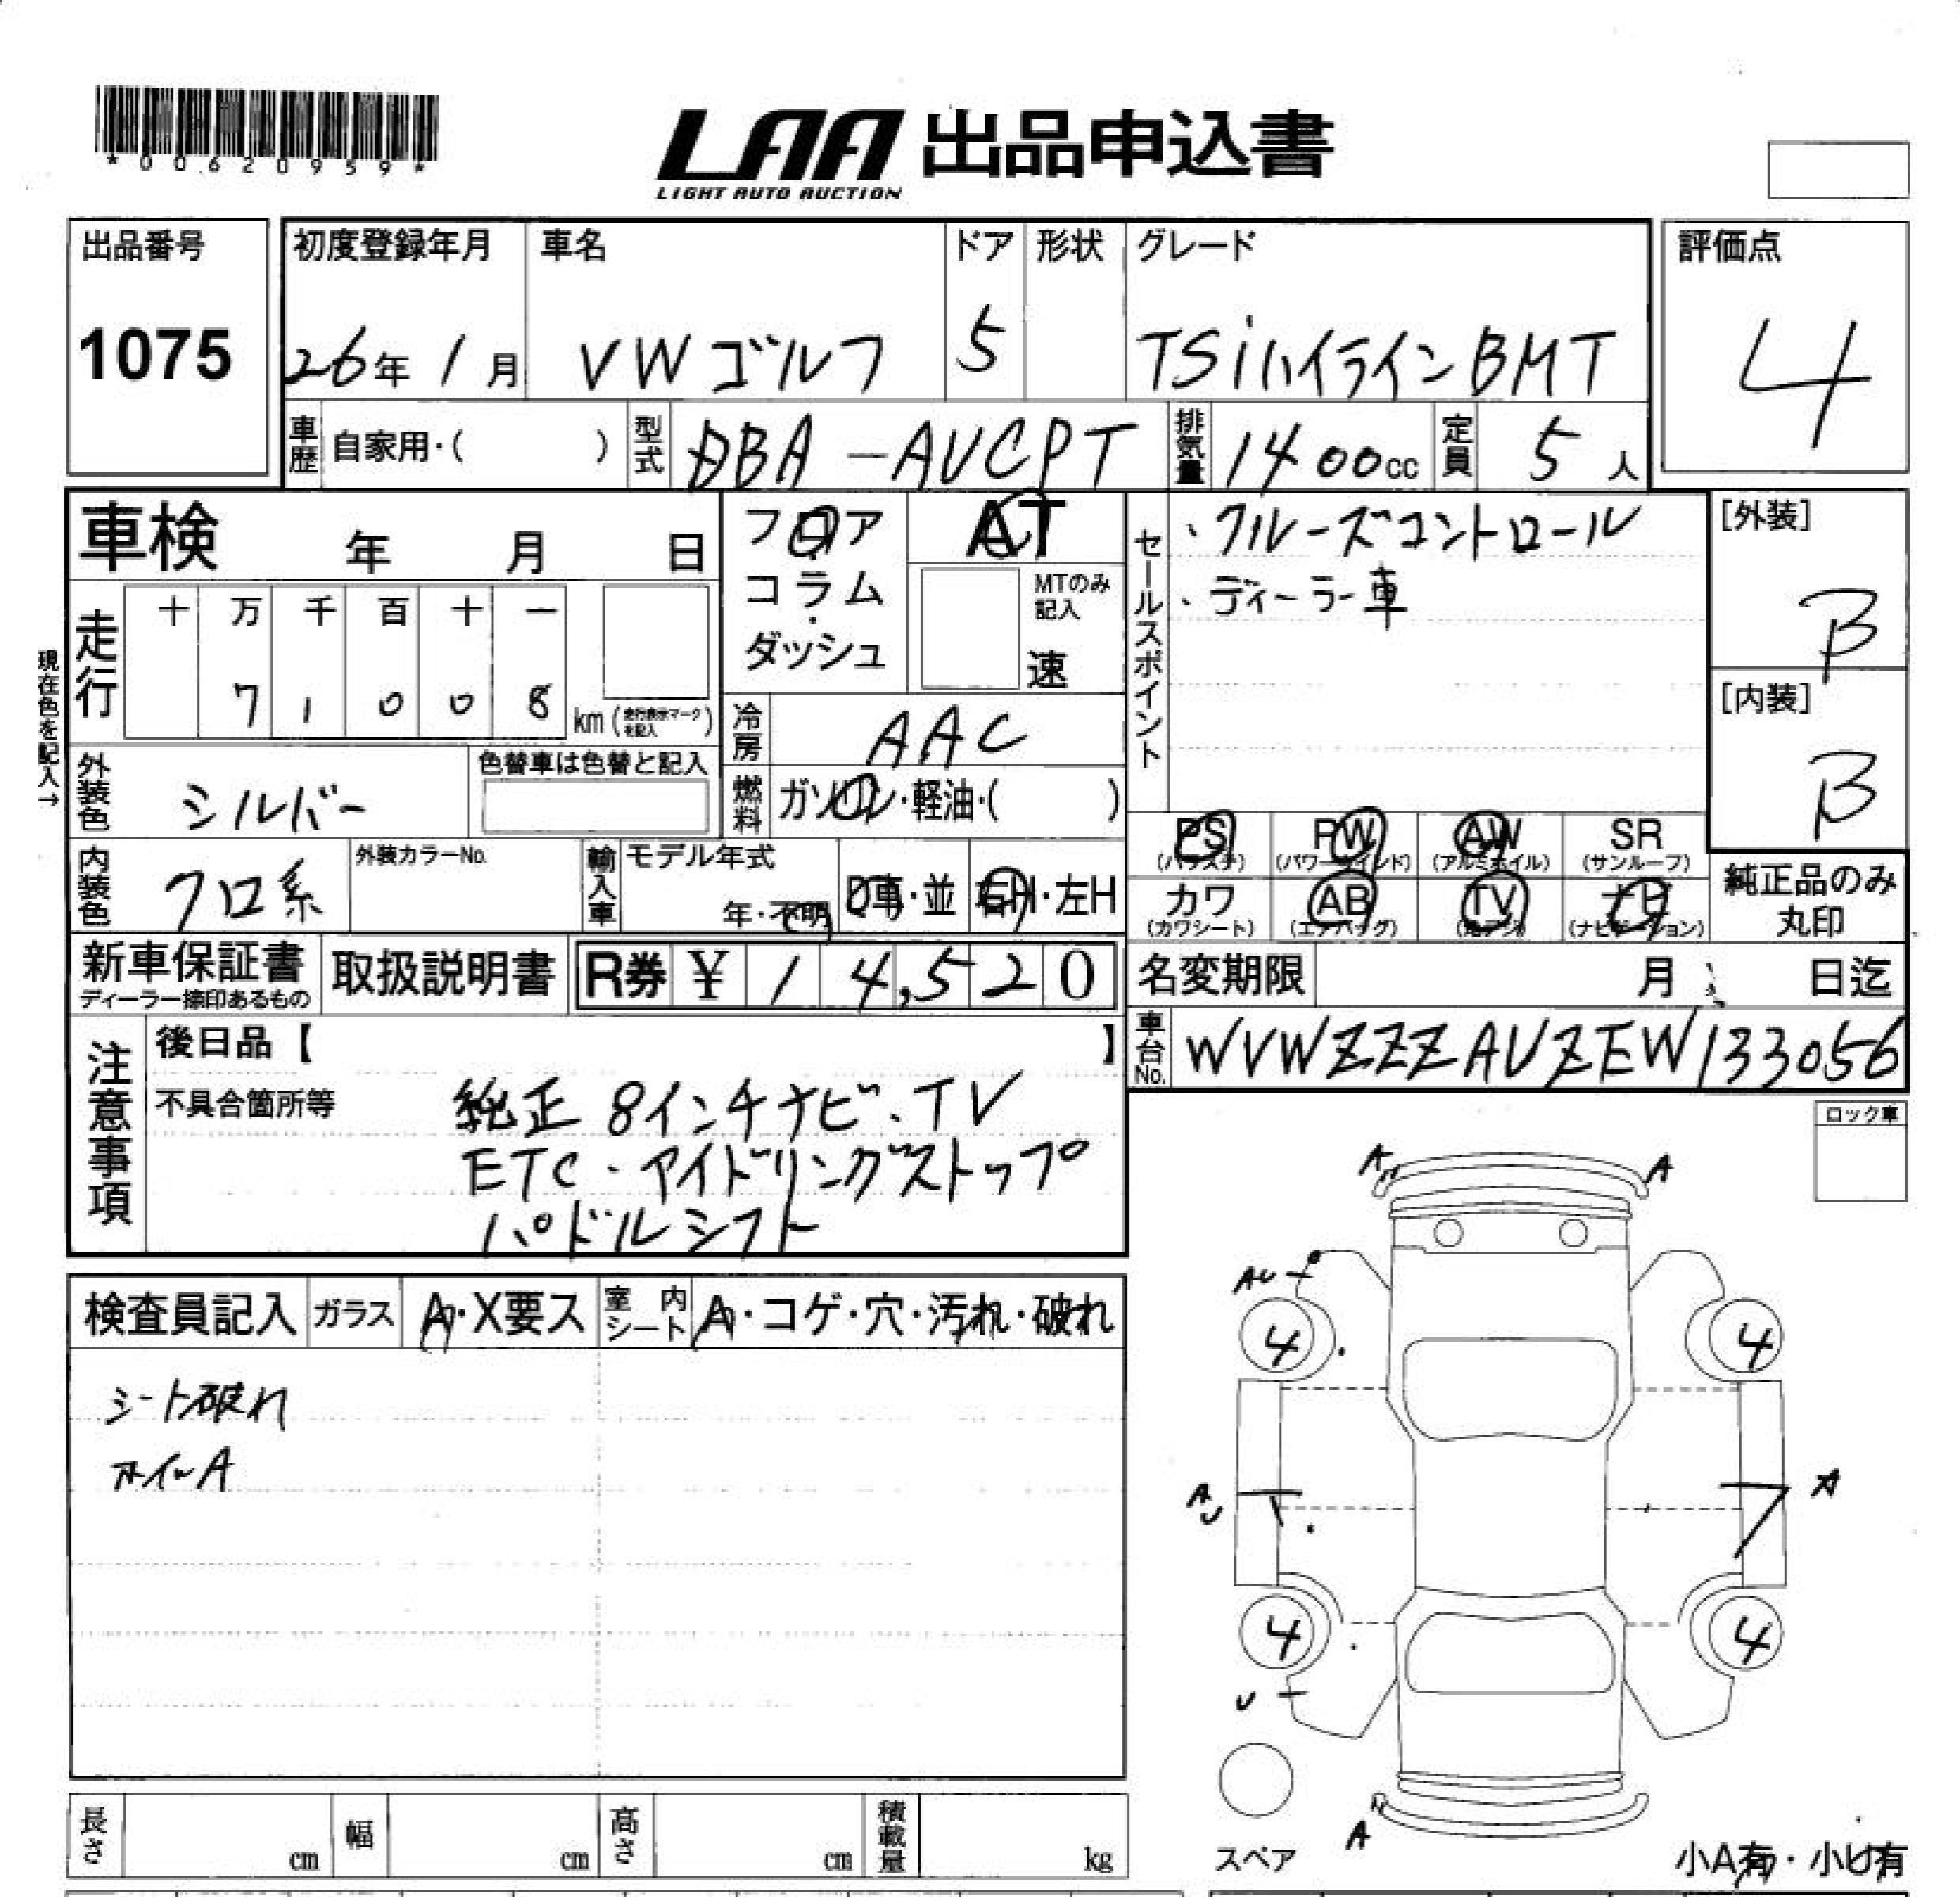 *00620959*
LAA 出品申込書
LIGHT AUTO AUCTION
出品番号
1075
初度登録年月
26年 1月
車名
VW ゴルフ
ドア
5
形状
グレード
TSiハイラインBMT
評価点
4
車歴 自家用・( )
型式 DBA-AUCPT
排気量 1400cc
定員 5人
車検 年 月 日
フロア
コラム
・
ダッシュ
AT
MTのみ
記入
速
セールスポイント
・クルーズコントロール
・ディーラー車
[外装]
B
[内装]
B
現在色を記入→
走行
十 万 千 百 十 一
7 1 0 0 8 km (走行表示マークを記入)
冷房 AAC
外装色 シルバー
色替車は色替と記入
燃料 ガソリン・軽油・( )
内装色 クロ系
外装カラーNo.
輸入車
モデル年式
年・不明
D車・並
右H・左H
PS (パワステ)
PW (パワーウインド)
AW (アルミホイル)
SR (サンルーフ)
カワ (カワシート)
AB (エアバッグ)
TV (地デジ)
ナビ (ナビゲーション)
純正品のみ
丸印
新車保証書
ディーラー捺印あるもの
取扱説明書
R券 ¥ 14,520
名変期限 月 日迄
車台No. WVWZZZAUZEW133056
注意事項
後日品【 】
不具合箇所等
純正 8インチナビ・TV
ETC・アイドリングストップ
パドルシフト
ロック車
検査員記入
ガラス A・X要ス
室内シート A・コゲ・穴・汚れ・破れ
シート破れ
ホイルA
A A
AU
4 4
A
U
A
4 4
U
A
スペア
小A有・小U有
長さ cm
幅 cm
高さ cm
積載量 kg